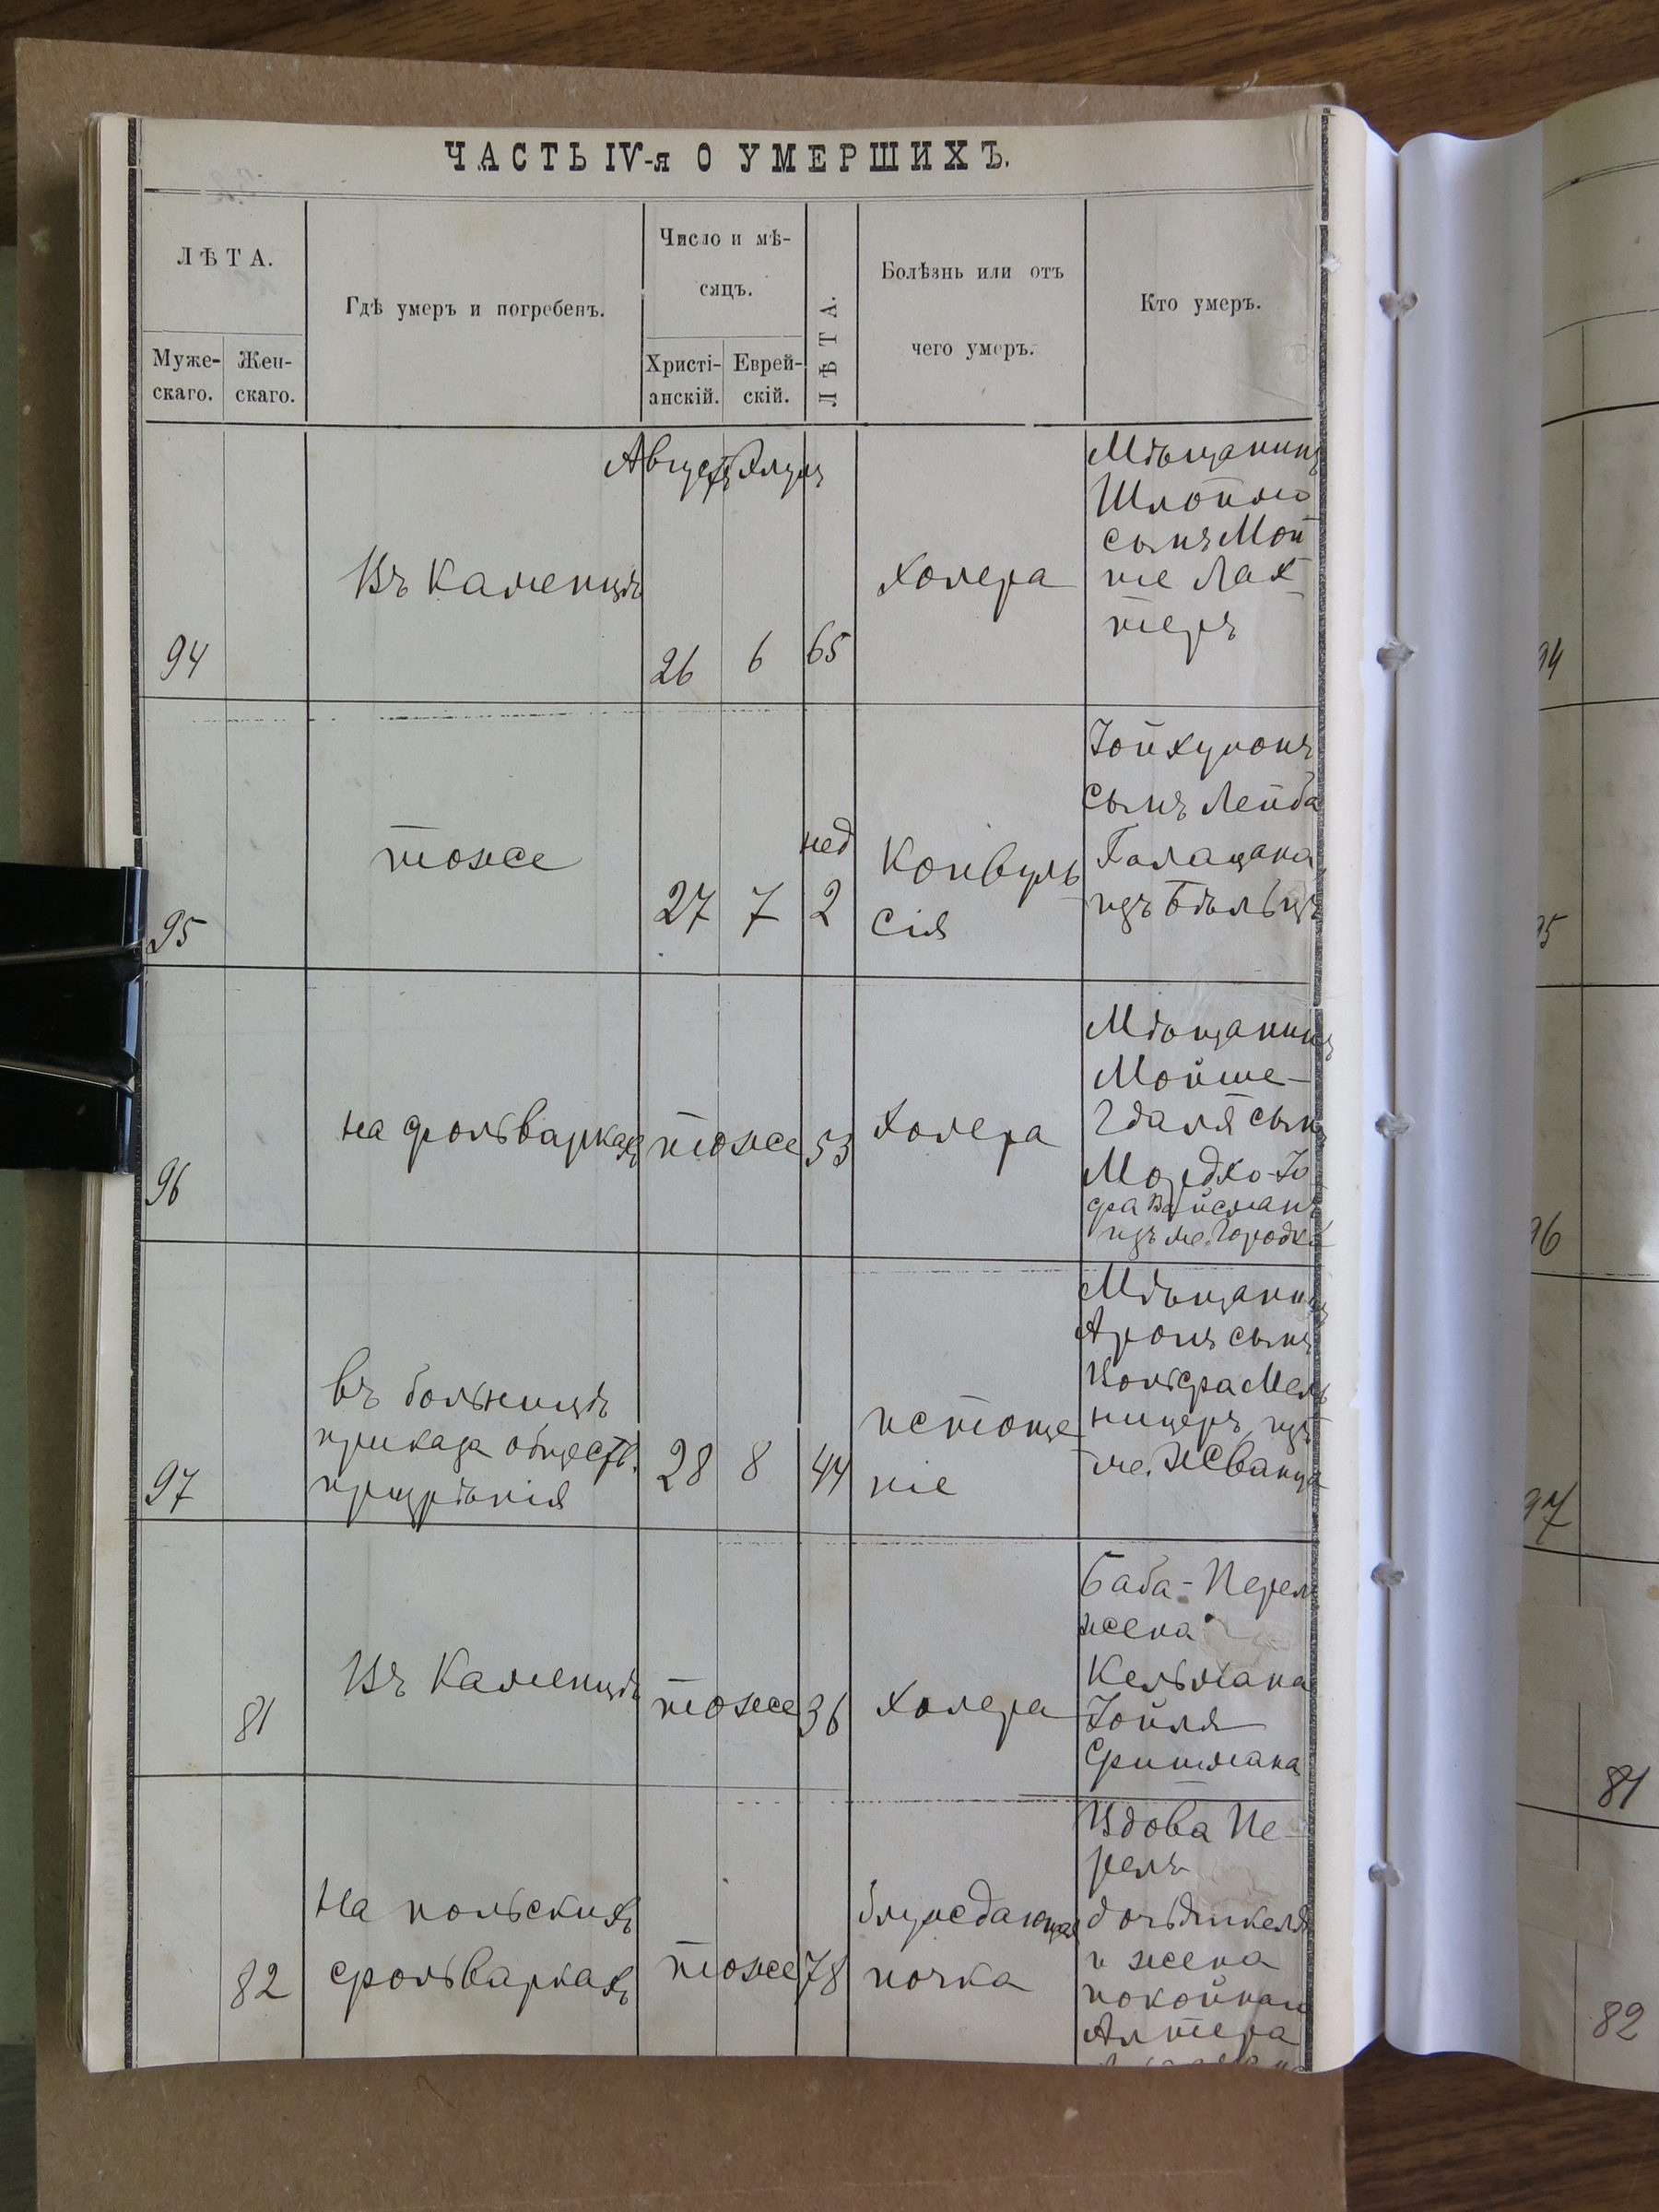 ЧАСТЬ IV-я О УМЕРШИХЪ.
ЛѢТА.
Муже-
скаго.
Жен-
скаго.
Гдѣ умеръ и погребенъ.
Число и мѣ-
сяцъ.
Христі-
анскій.
Еврей-
скій.
ЛѢТА.
Болѣзнь или отъ
чего умеръ.
Кто умеръ.
Августъ Элулъ
94
Въ Каменцѣ
26
6
65
Холера
Мѣщанинъ
Шлойме
сынъ Мой
ше Лах
теръ
95
тоже
27
7
нед
2
Конвуль
сія
сынъ Лейба
Галацана
изъ Бѣльцъ
96
на фольваркахъ
тоже
53
Холера
Мѣщанинъ
Мойше-
Гдаля сынъ
Мордко-Іо
сфа Вайсманъ
изъ м. Городка
97
въ больницѣ
приказа обществ.
призрѣнія
28
8
44
истоще
ніе
Мѣщанинъ
Аронъ сынъ
Вольфа Мель
ницеръ изъ
м. Жванца
81
Въ Каменцѣ
тоже
36
холера
Баба-Перель
жена
Кельмана
Іойля
Фишмана
82
На польскихъ
фольваркахъ
тоже
78
блуждающая
почка
Вдова Пе-
рель
и жена
покойнаго
Алтера
94
95
96
97
81
82